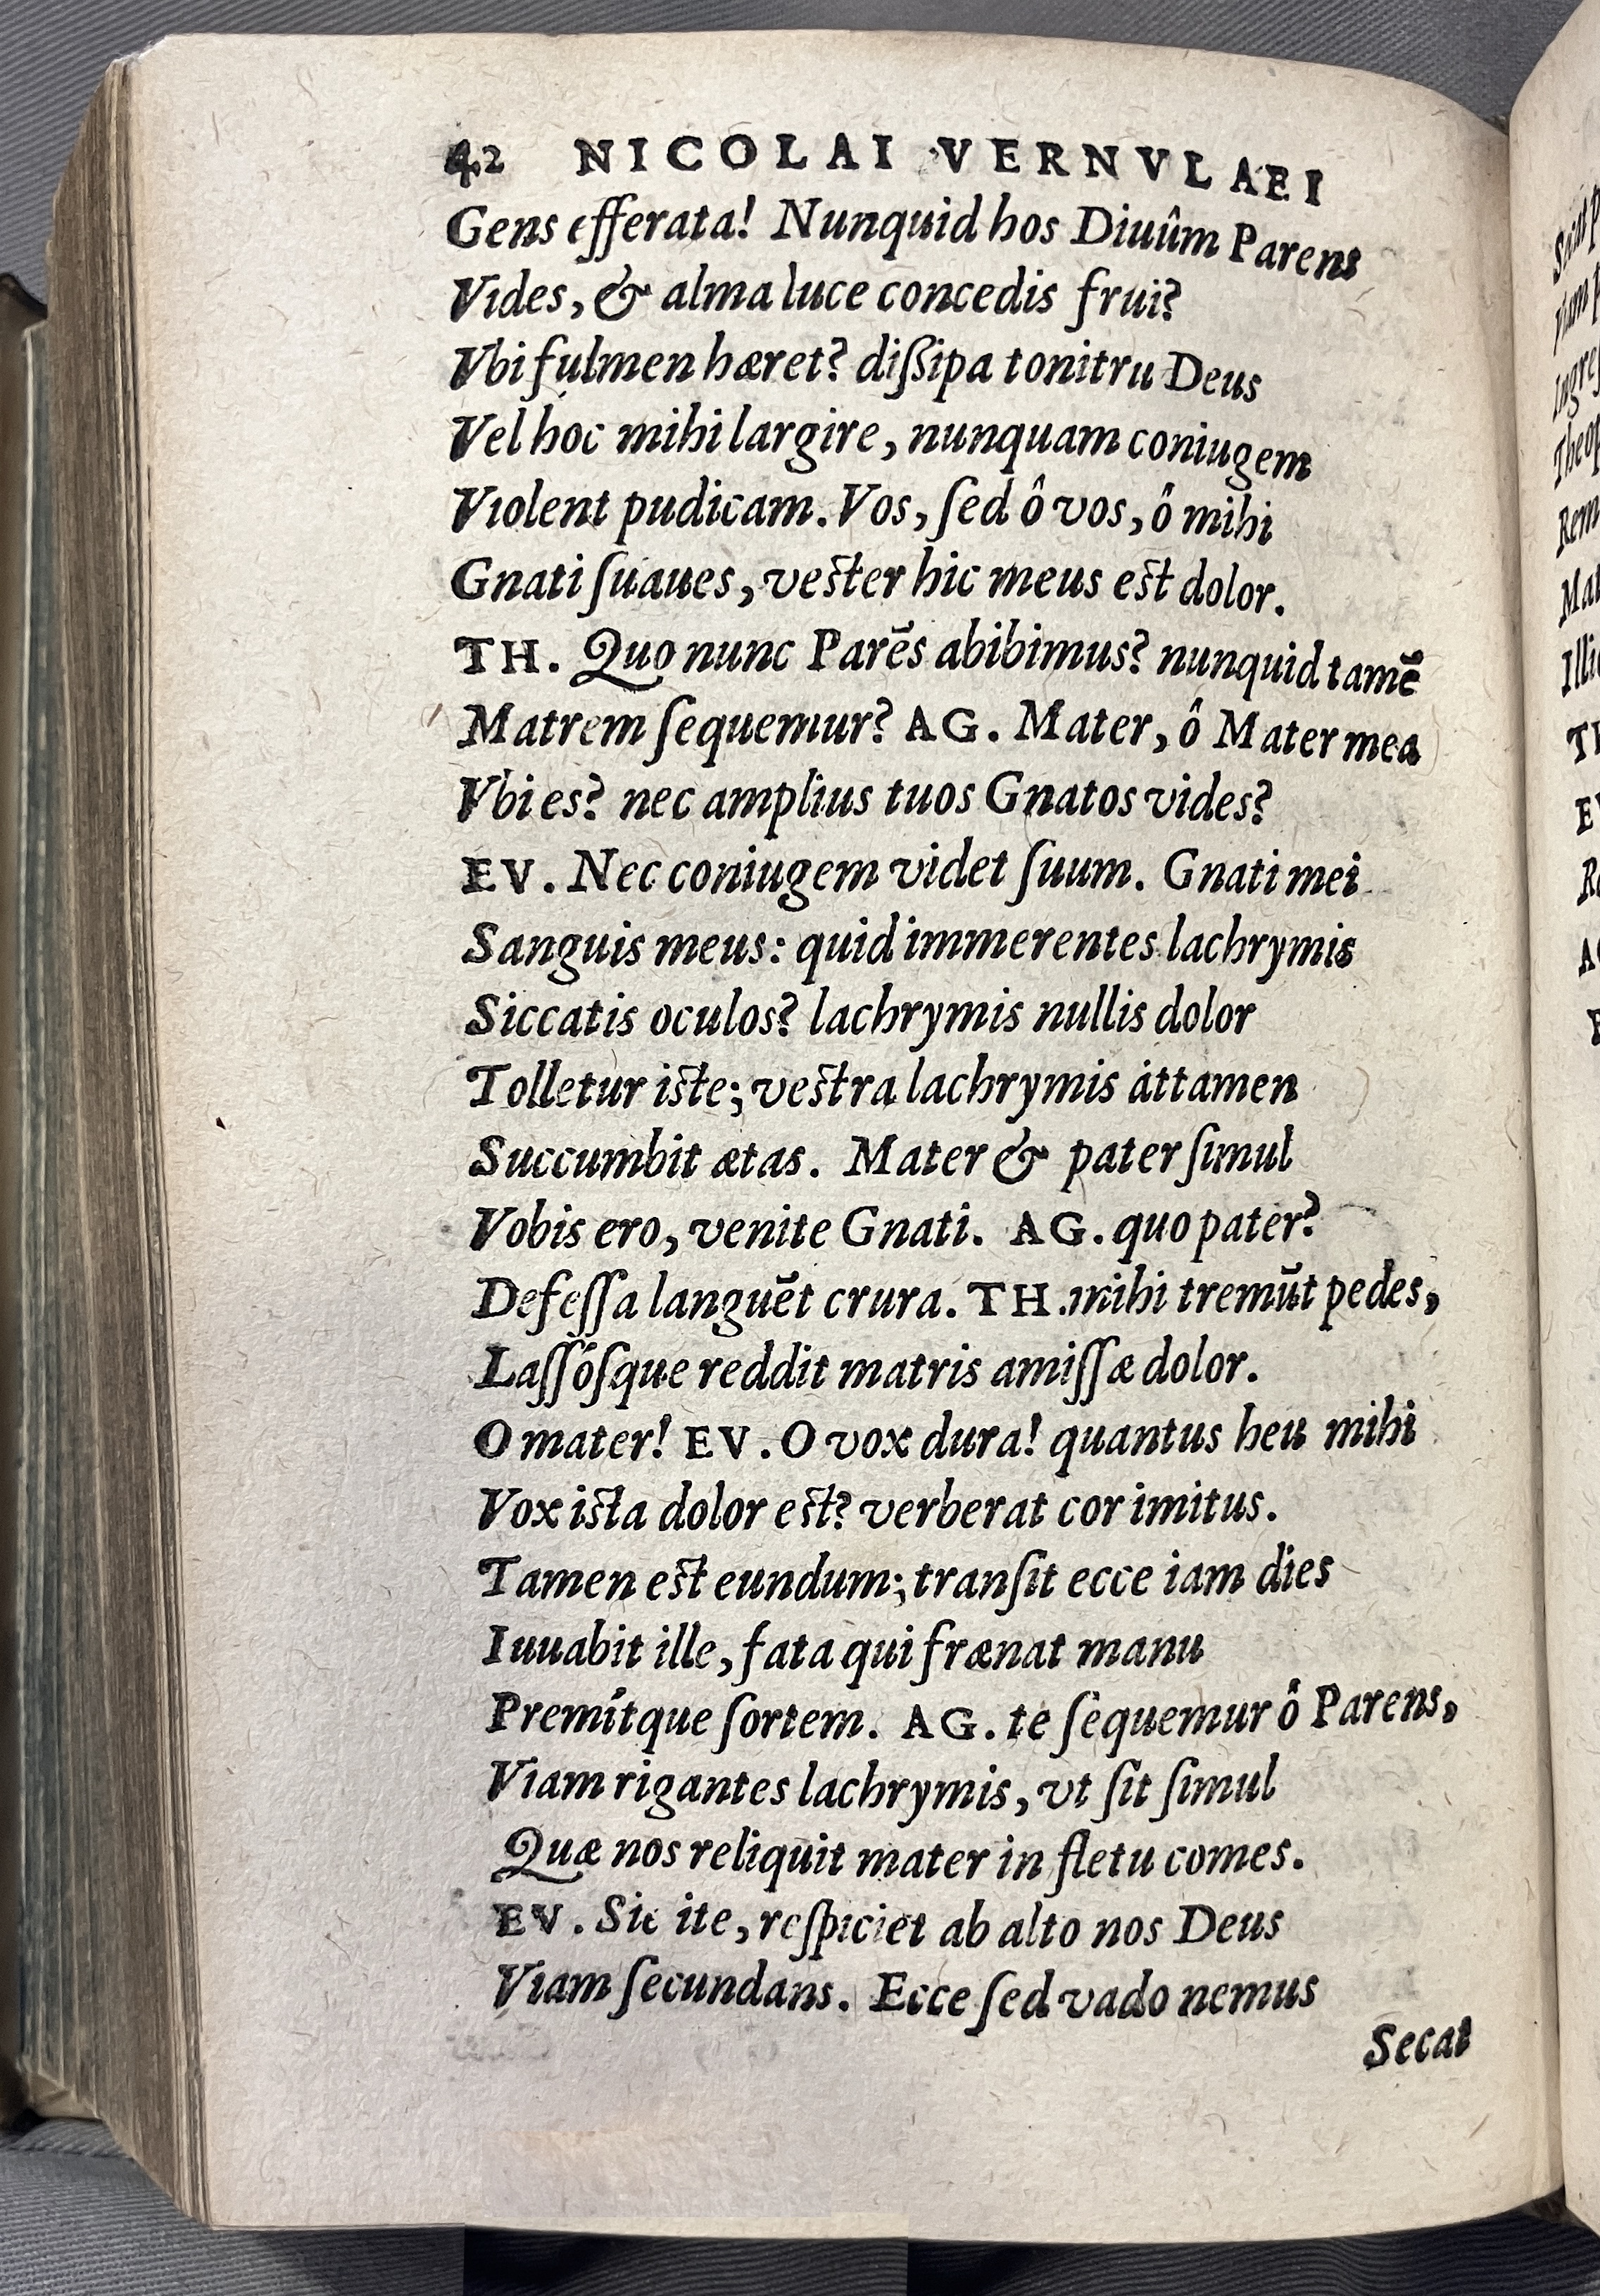 42 NICOLAI VERNVLAEI
Gens efferata! Nunquid hos Diuûm Parens
Vides, & alma luce concedis frui?
Vbi fulmen hæret? diſsipa tonitru Deus
Vel hoc mihi largire, nunquam coniugem
Violent pudicam. Vos, ſed ô vos, ô mihi
Gnati ſuaues, veſter hic meus eſt dolor.
TH. Quo nunc Parēs abibimus? nunquid tamē
Matrem ſequemur? AG. Mater, ô Mater mea
Vbi es? nec amplius tuos Gnatos vides?
EV. Nec coniugem videt ſuum. Gnati mei
Sanguis meus: quid immerentes lachrymis
Siccatis oculos? lachrymis nullis dolor
Tolletur iſte; veſtra lachrymis attamen
Succumbit ætas. Mater & pater ſimul
Vobis ero, venite Gnati. AG. quo pater?
Defeſſa languēt crura. TH. mihi tremūt pedes,
Laſſóſque reddit matris amiſſæ dolor.
O mater! EV. O vox dura! quantus heu mihi
Vox iſta dolor eſt? verberat cor imitus.
Tamen eſt eundum; tranſit ecce iam dies
Iuuabit ille, fata qui frænat manu
Premítque ſortem. AG. te ſequemur ô Parens,
Viam rigantes lachrymis, vt ſit ſimul
Quæ nos reliquit mater in fletu comes.
EV. Sic ite, reſpiciet ab alto nos Deus
Viam ſecundans. Ecce ſed vado nemus
Secat